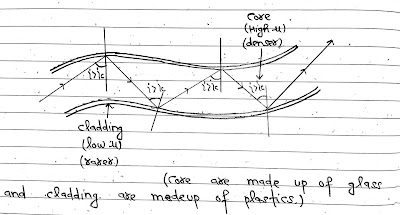 Core
(High μ)
(denser)
i>ic
i>ic
i>ic
i>ic
cladding
(low μ)
(rarer)
(Core are made up of glass
and cladding are madeup of plastics.)